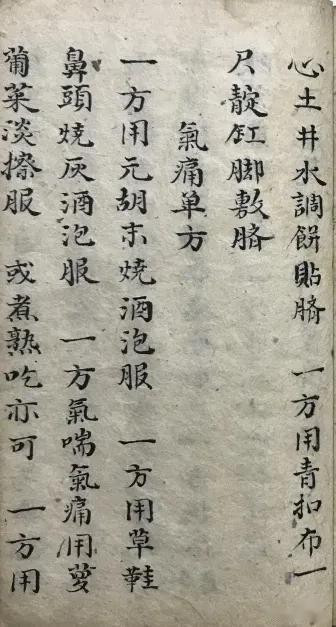 心土井水調餅貼臍　一方用青扣布一
尺靛缸脚敷臍
氣痛单方
一方用元胡末燒酒泡服　一方用草鞋
鼻頭燒灰酒泡服　一方氣喘氣痛用蔓
蔔菜淡擦服　或煮熟吃亦可　一方用